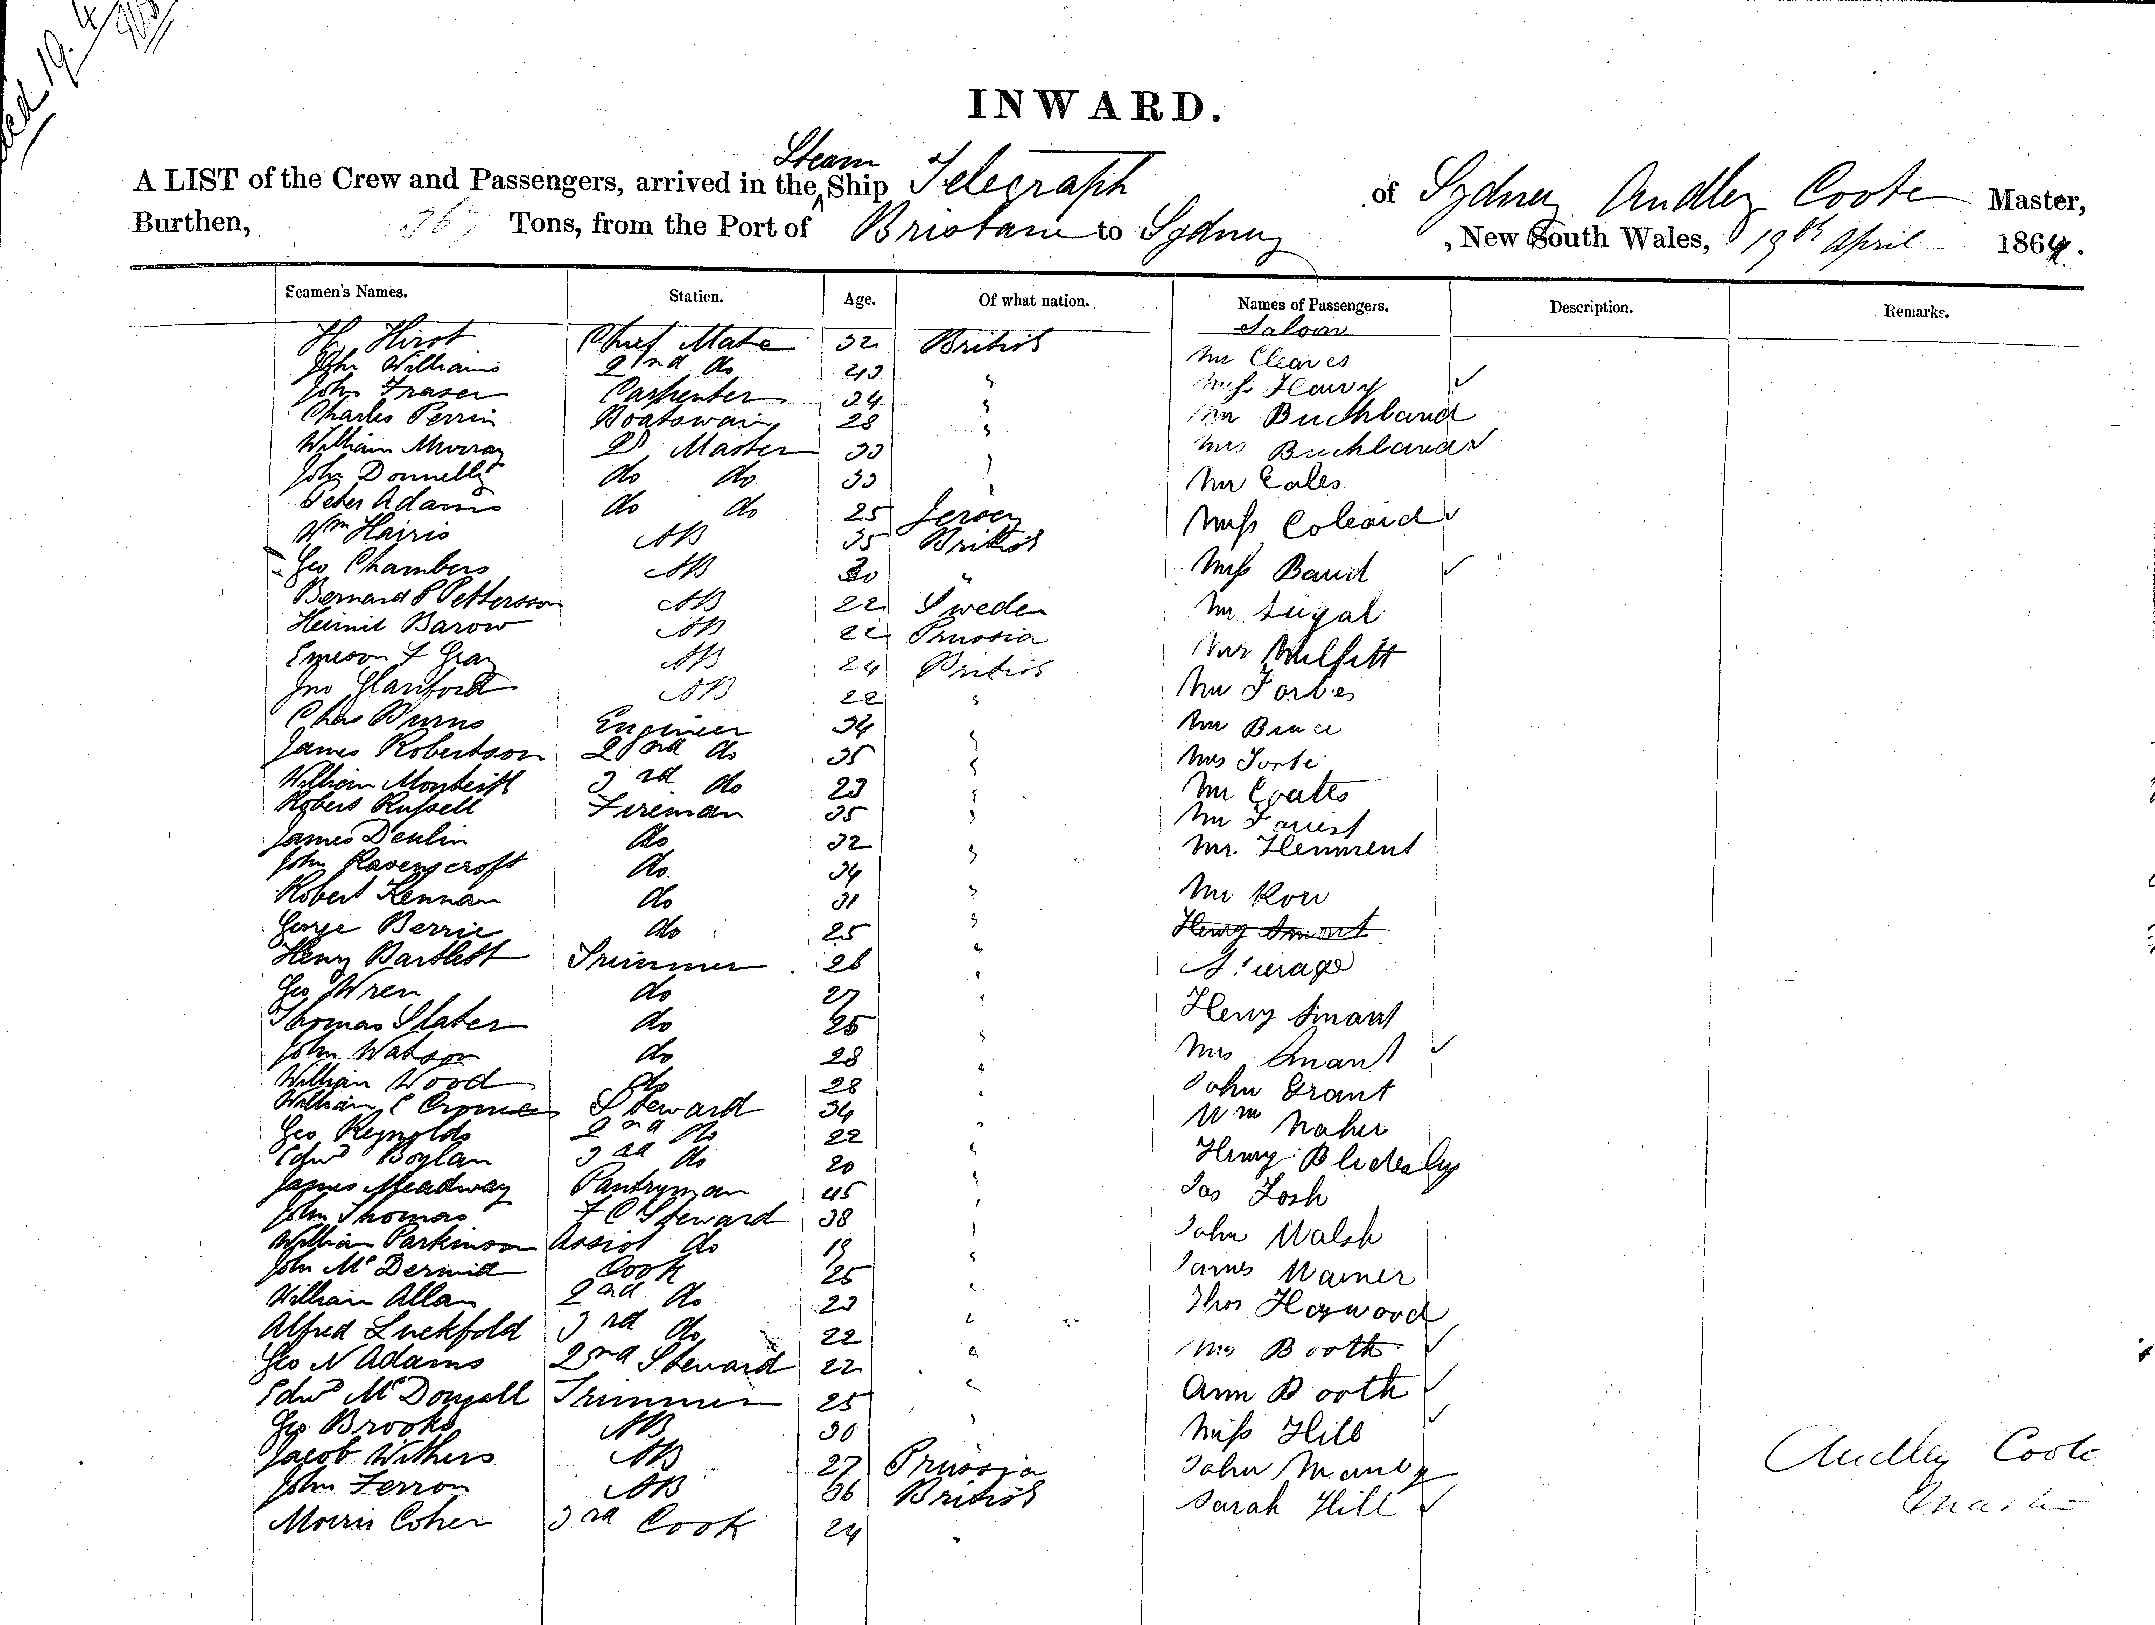 INWARD.
Steam
A LIST of the Crew and Passengers, arrived in the Ship Telegraph of Sydney Audley Coote Master,
Burthen, 367 Tons, from the Port of Brisbane to Sydney, New South Wales, 19th April 1864.
Seamen's Names. Station. Age. Of what nation. Names of Passengers. Description. Remarks.
Saloon
H. Hirst Chief Mate 32 British Mr Cleaves
John Williams 2nd do 40 " Miss
John Fraser Carpenter 34 " Mr Buckland
Charles Perrin Boatswain 28 " Mrs Buckland
William Murray Qr Master 33 " Mr Eales
John Donnelly do do 33 " Miss
Peter Adams do do 25 Jersey Miss
Wm Harris AB 35 British Mr
Geo Chambers AB 30 " Mr
Bernard P Pettersson AB 22 Sweden Mr Forbes
Barow AB 22 Prussia Mr Bruce
Gray AB 24 British Mrs
Jno Stanford AB 22 " Mr Coates
Chas Burns Engineer 34 " Mr
James Robertson 2nd do 35 " Mr Henment
William Monteith 3rd do 23 " Mr
Robert Russell Fireman 35 " Henry Smart
James Devlin do 32 " Steerage
John Ravenscroft do 34 " Henry Smart
Robert Kennan do 31 " Mrs Smart
George Berrie do 25 " John Grant
Henry Bartlett Trimmer 26 " Wm Maher
Geo Wren do 27 " Henry
Thomas Slater do 25 " Jas Tosh
John Watson do 28 " John Walsh
William Wood do 28 " James Warner
William C Steward 34 " Thos Heywood
Geo Reynolds 2nd do 22 " Mrs Booth
Edwd Boylan 3rd do 20 " Ann Booth
James Meadway Pantryman 45 " Miss Hill
John Thomas F C Steward 38 " John
William Parkinson Assist do 19 " Sarah Hill
John McDermid Cook 25 "
William Allan 2nd do 23 "
Alfred Luckfold 3rd do 22 "
Geo N Adams 2nd Steward 22 "
Edwd McDongall Trimmer 25 "
Geo Brooks AB 30 "
Jacob Withers AB 27 Prussia
John Ferron AB 36 British
Morris Cohen 3rd Cook 24 "
Audley Coote
Master